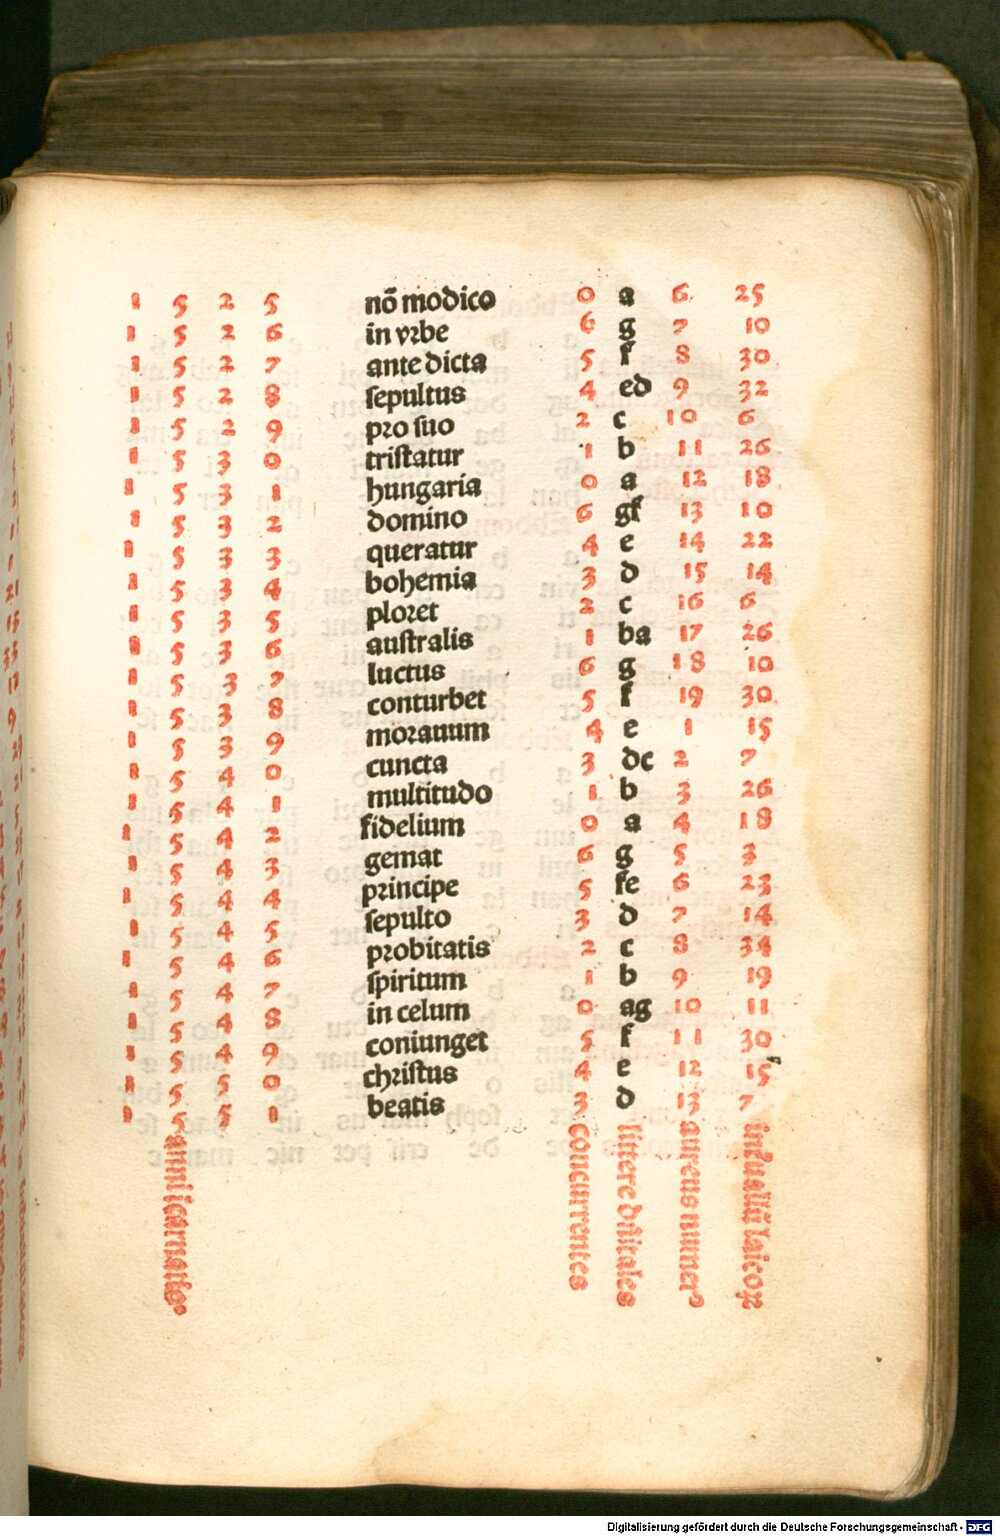 1 5 2 5 nō modico 0 a 6 25
1 5 2 6 in vrbe 6 g 7 10
1 5 2 7 ante dicta 5 f 8 30
1 5 2 8 sepultus 4 ed 9 32
1 5 2 9 pro suo 2 c 10 6
1 5 3 0 tristatur 1 b 11 26
1 5 3 1 hungaria 0 a 12 18
1 5 3 2 domino 6 gf 13 10
1 5 3 3 queratur 4 e 14 22
1 5 3 4 bohemia 3 d 15 14
1 5 3 5 ploret 2 c 16 6
1 5 3 6 australis 1 ba 17 26
1 5 3 7 luctus 6 g 18 10
1 5 3 8 conturbet 5 f 19 30
1 5 3 9 morauum 4 e 1 15
1 5 4 0 cuncta 3 dc 2 7
1 5 4 1 multitudo 1 b 3 26
1 5 4 2 fidelium 0 a 4 18
1 5 4 3 gemat 6 g 5 3
1 5 4 4 principe 5 fe 6 23
1 5 4 5 sepulto 3 d 7 14
1 5 4 6 probitatis 2 c 8 34
1 5 4 7 spiritum 1 b 9 19
1 5 4 8 in celum 0 ag 10 11
1 5 4 9 coniunget 5 f 11 30
1 5 5 0 christus 4 e 12 15
1 5 5 1 beatis 3 d 13 7
concurrentes
aureus numer⁹
Digitalisierung gefördert durch die Deutsche Forschungsgemeinschaft - DFG